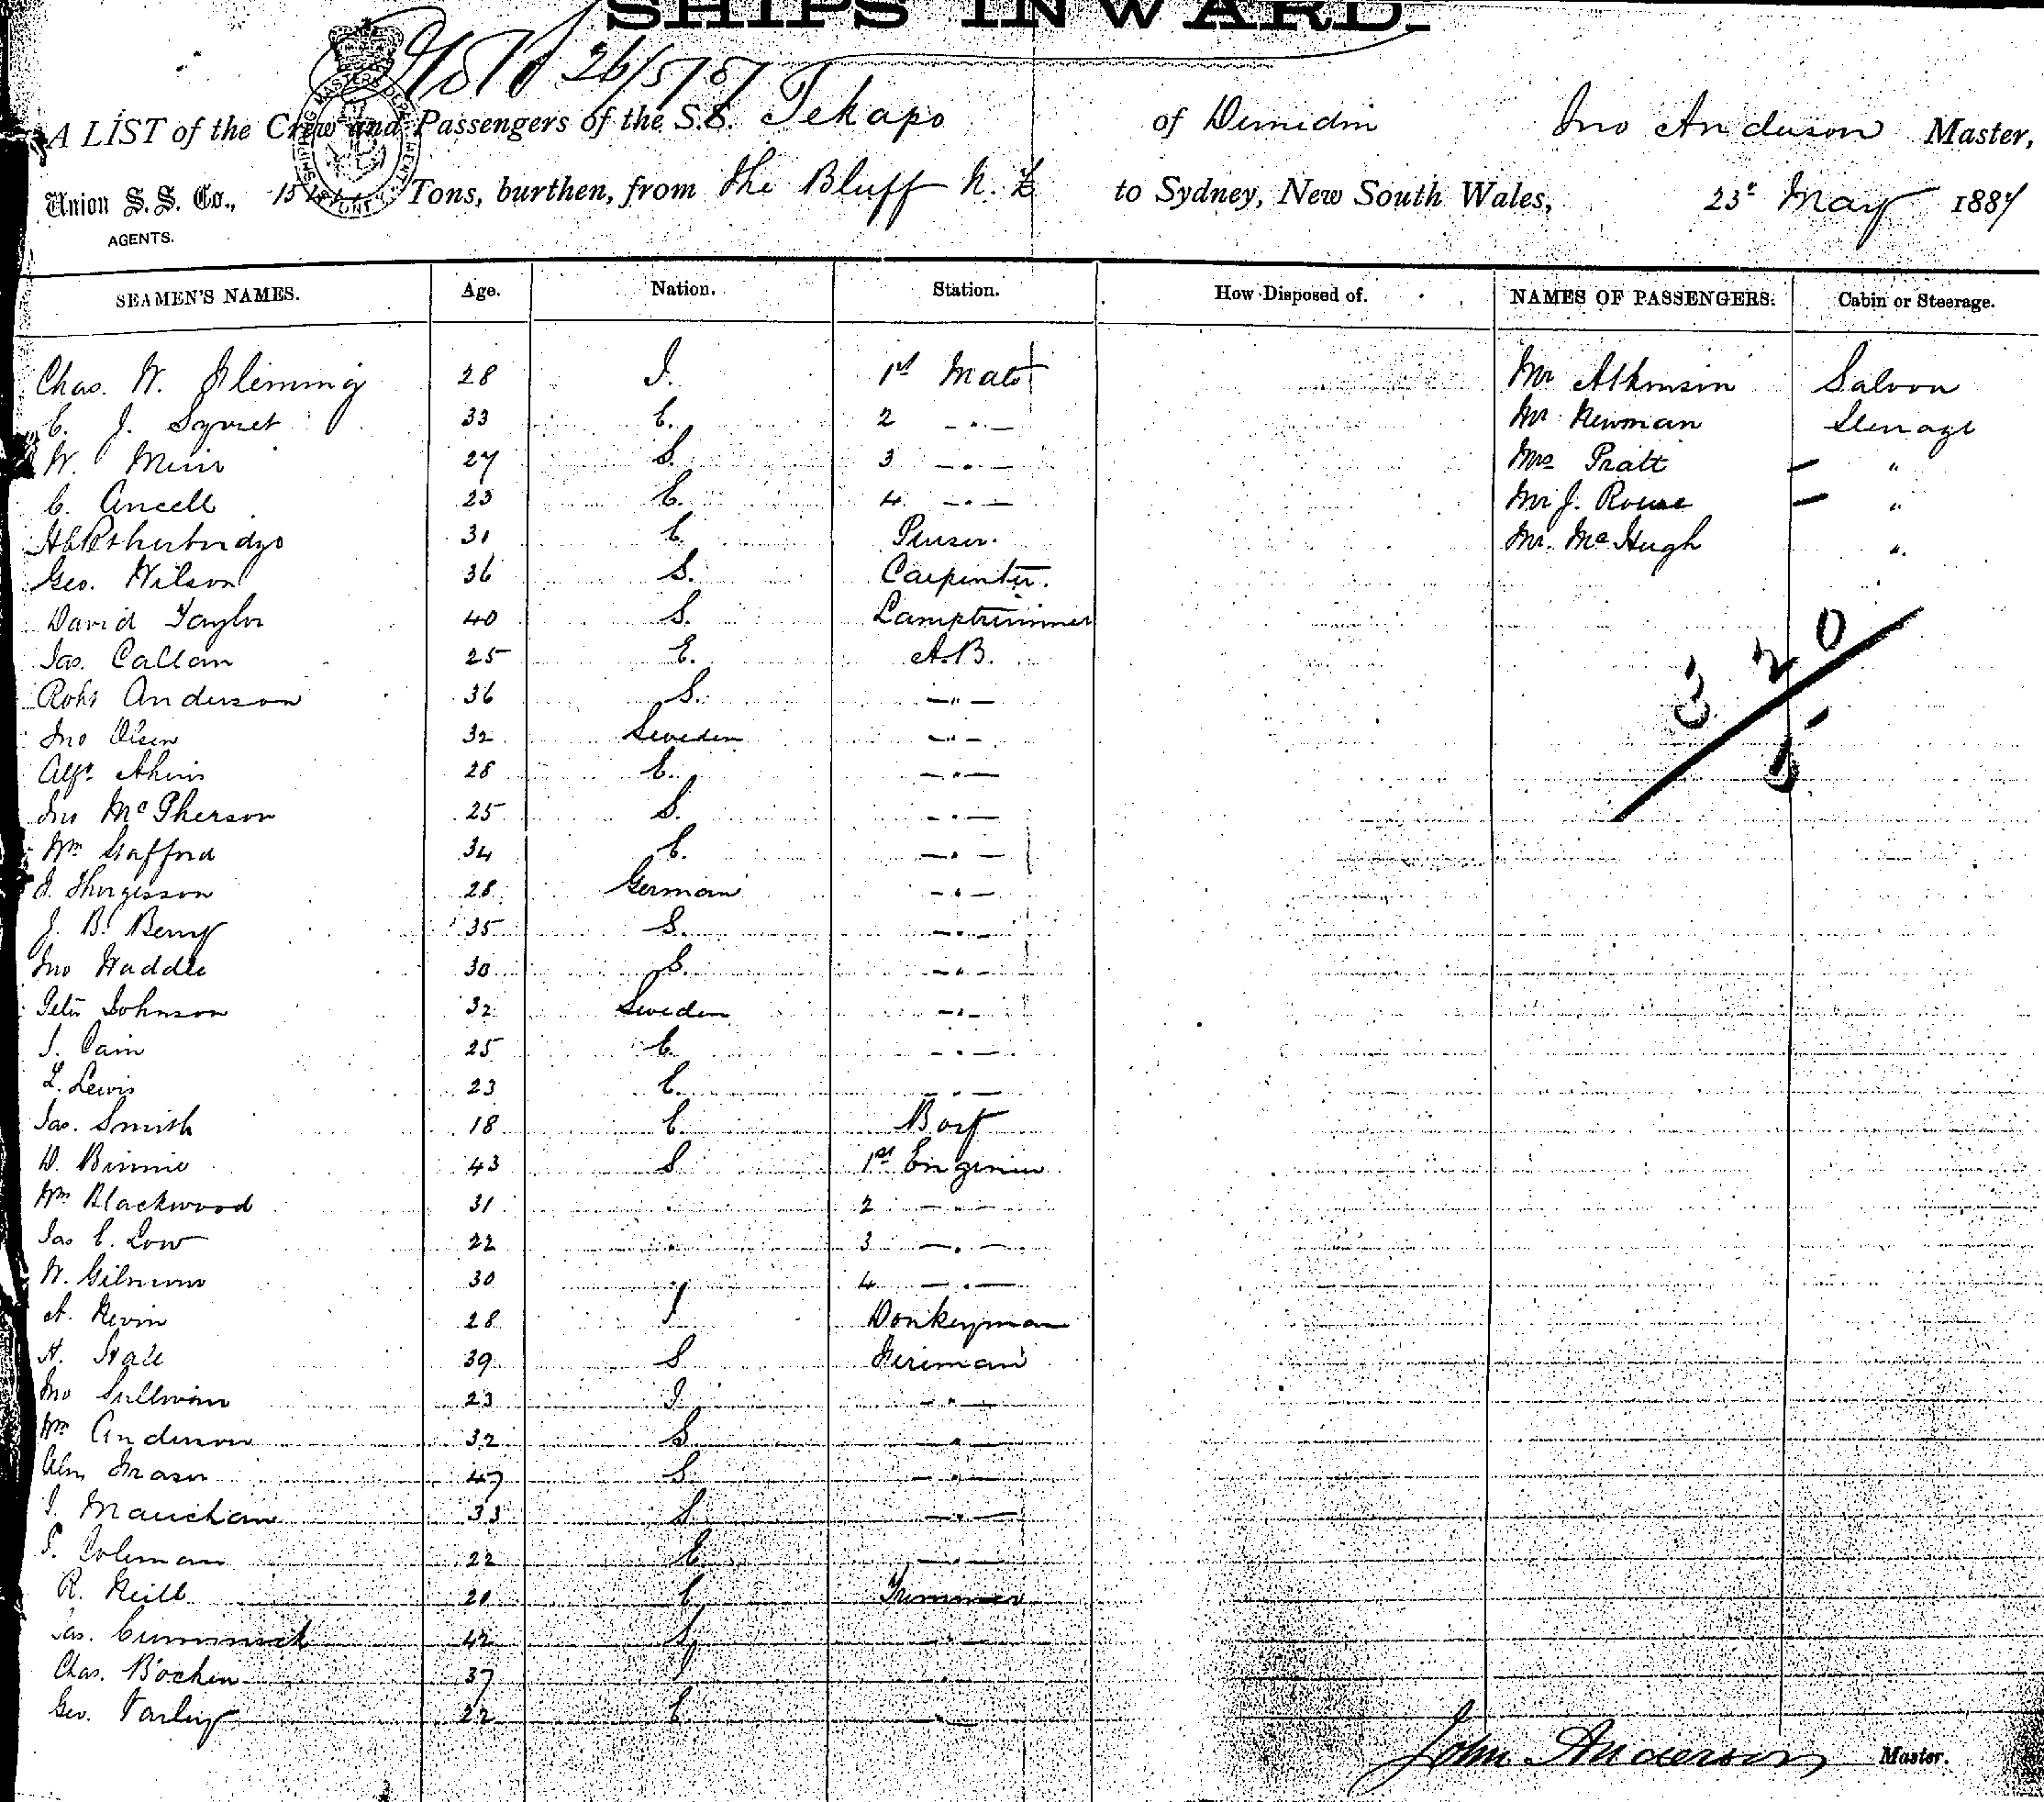 SHIPS INWARD.
26/5/87
A LIST of the Crew and Passengers of the S.S. Tekapo of Dunedin Jno Anderson Master,
Union S. S. Co., Tons, burthen, from The Bluff N. Z to Sydney, New South Wales, 23d May 1887
AGENTS.
SEAMEN'S NAMES. Age. Nation. Station. How Disposed of. NAMES OF PASSENGERS. Cabin or Steerage.
Chas. W. Fleming 28 I. 1st Mate Mr Atkinson Saloon
E. J. 33 E. 2 —„— Mr Newman Steerage
W. Muir 27 S. 3 —„— Mrs Pratt — "
C. Ancell 23 E. 4 —„— Mr J. Rouse — "
31 E. Purser. Mr. McHugh "
Geo. Wilson 36 S. Carpenter.
David Taylor 40 S. Lamptrimmer
Jas. Callan 25 E. A.B.
Robt Anderson 36 S. —„—
Jno Olsen 32 Sweden —„—
Alfd. Akins 28 E. —„—
Jno McPherson 25 S. —„—
Wm Stafford 34 E. —„—
J. Thorgesson 28 German —„—
J. B. Berry 35 S. —„—
Jno Waddle 30 S. —„—
Peter Johnson 32 Sweden —„—
J. Cain 25 E. —„—
L. Lewis 23 E. —„—
Jas. Smith 18 E. Boy
D. Binnie 43 S 1st Engineer
Wm Blackwood 31 " 2 —„—
Jas E. Low 22 " 3 —„—
W. Gilmour 30 " 4 —„—
A. Nevin 28 I Donkeyman
H. Hall 39 S Fireman
Jno Sullivan 23 I —„—
Wm Anderson 32 S —„—
Alex Fraser 47 S. —„—
J. Mauchan 33 S —„—
S. Coleman 22 E. —„—
R. Neill 21 E Trimmer
Jas. 42 S "
Chas. 37 I "
Geo. Varley 22 E "
3 20
5
John Anderson Master.